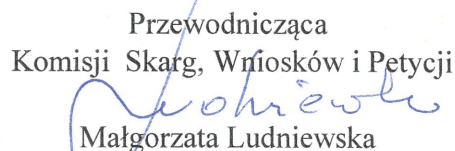 Przewodnicząca
Komisji Skarg, Wniosków i Petycji
Ludniewska
Małgorzata Ludniewska